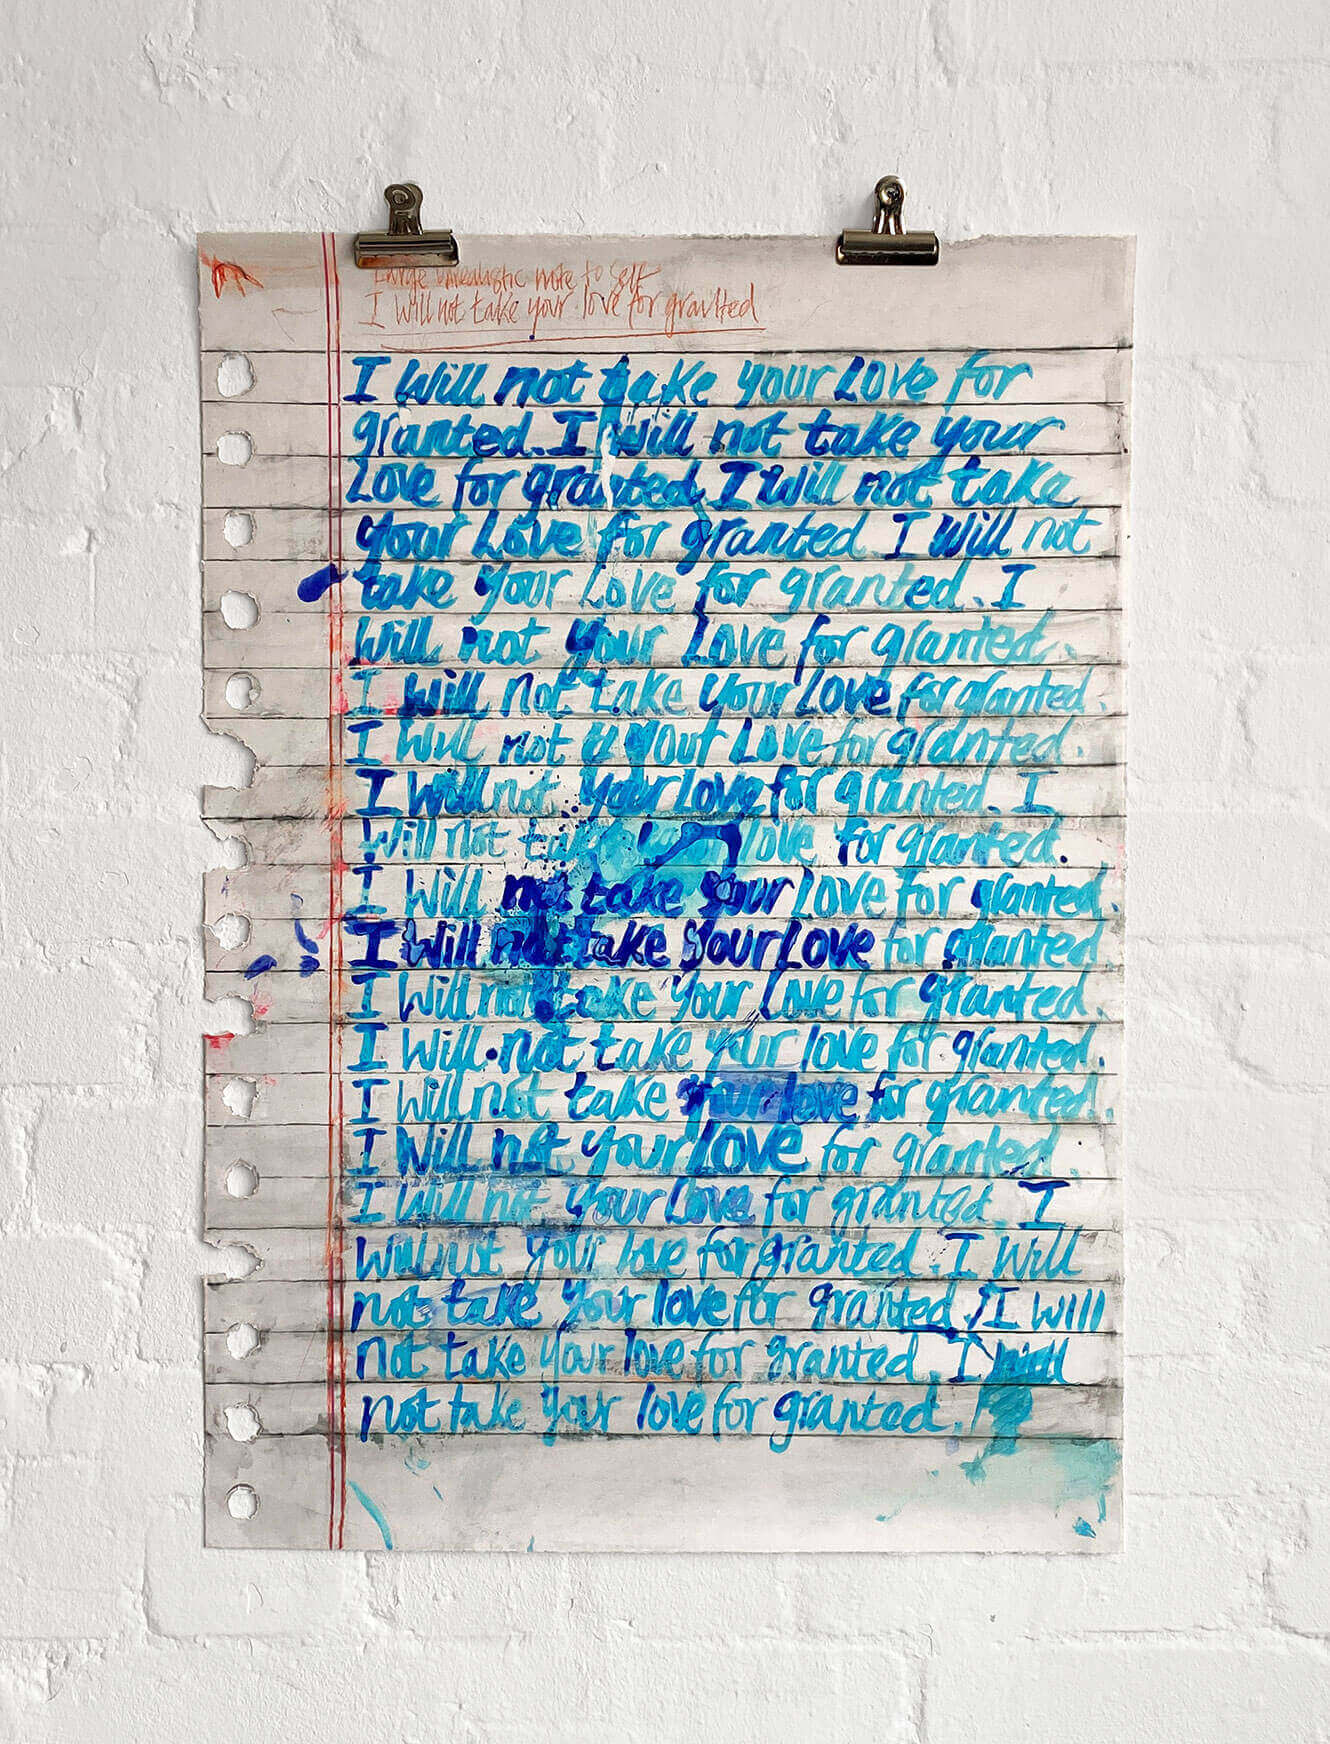 Large unrealistic note to self
I will not take your love for granted
I will not take your Love for
granted. I will not take your
Love for granted. I will not take
your Love for granted. I will not
take your Love for granted. I
will not your Love for granted.
I will not take your Love for granted.
I will not your Love for granted.
I will not your Love for granted. I
will not take your love for granted.
I will not take your Love for granted.
I will not take your Love for granted
I will not take your Love for granted.
I will not take your love for granted.
I will not take your love for granted.
I will not your Love for granted.
I will not your Love for granted. I
will not your love for granted. I will
not take your love for granted. I will
not take your love for granted. I will
not take your love for granted.